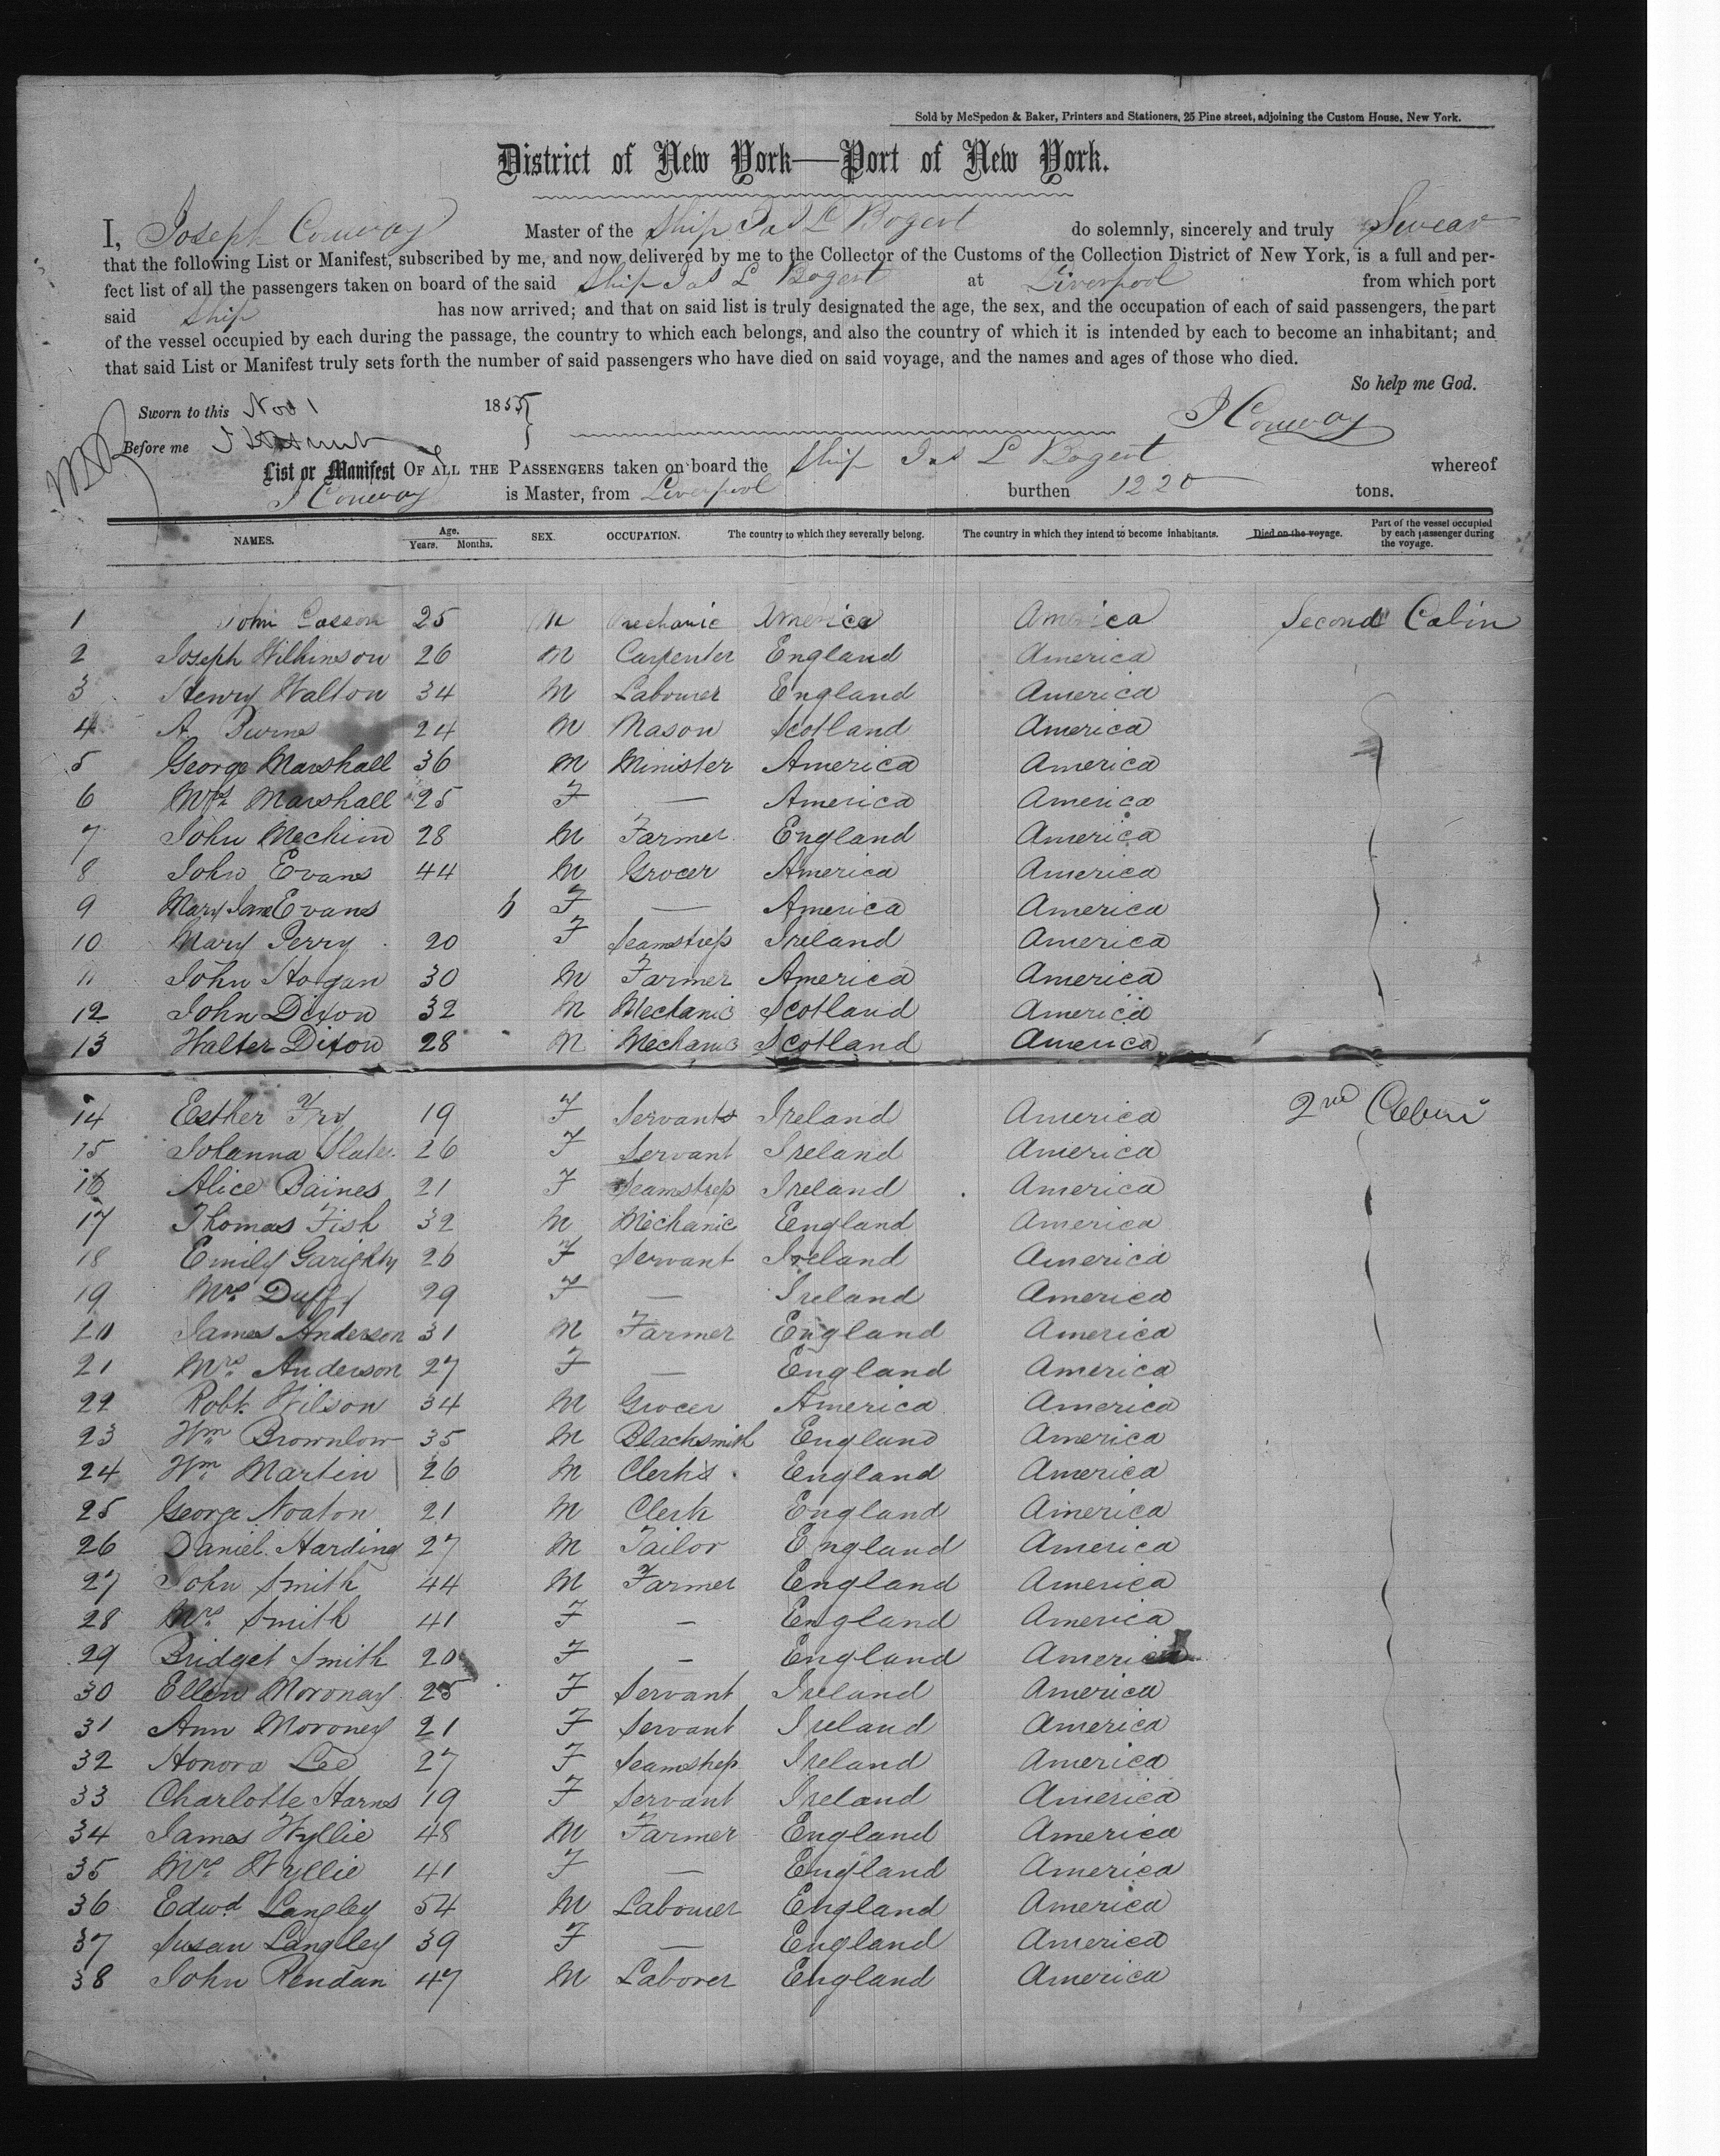 Sold by McSpedon & Baker, Printers and Stationers, 25 Pine street, adjoining the Custom House, New York.
District of New York—Port of New York.
I, Joseph Conway Master of the Ship Jas L Bogert do solemnly, sincerely and truly Swear
that the following List or Manifest, subscribed by me, and now delivered by me to the Collector of the Customs of the Collection District of New York, is a full and per-
fect list of all the passengers taken on board of the said Ship Jas L Bogert at Liverpool from which port
said Ship has now arrived; and that on said list is truly designated the age, the sex, and the occupation of each of said passengers, the part
of the vessel occupied by each during the passage, the country to which each belongs, and also the country of which it is intended by each to become an inhabitant; and
that said List or Manifest truly sets forth the number of said passengers who have died on said voyage, and the names and ages of those who died.
So help me God.
Sworn to this Nov 1 1855
J Conway
Before me
List or Manifest OF ALL THE PASSENGERS taken on board the Ship Jas L Bogert whereof
J Conway is Master, from Liverpool burthen 1220 tons.
NAMES. Age. Years. Months. SEX. OCCUPATION. The country to which they severally belong. The country in which they intend to become inhabitants. Died on the voyage. Part of the vessel occupied by each passenger during the voyage.
1 John 25 M Mechanic America America Second Cabin
2 Joseph Wilkinson 26 M Carpenter England America
3 Henry Walton 34 M Labourer England America
4 A. Burns 24 M Mason Scotland America
5 George Marshall 36 M Minister America America
6 Mrs Marshall 25 F — America America
7 John Mechim 28 M Farmer England America
8 John Evans 44 M Grocer America America
9 Mary Jane Evans 6 F — America America
10 Mary Perry 20 F Seamstress Ireland America
11 John Hogan 30 M Farmer America America
12 John Dixon 32 M Mechanic Scotland America
13 Walter Dixon 28 M Mechanic Scotland America
14 Esther Fry 19 F Servants Ireland America 2nd Cabin
15 Johanna Slater 26 F Servant Ireland America
16 Alice Baines 21 F Seamstress Ireland America
17 Thomas Fish 32 M Mechanic England America
18 Emily Garighty 26 F Servant Ireland America
19 Mrs Duffy 29 F — Ireland America
20 James Anderson 31 M Farmer England America
21 Mrs Anderson 27 F — England America
22 Robt. Wilson 34 M Grocer America America
23 Wm Brownlow 35 M Blacksmith England America
24 Wm Martin 26 M Clerks England America
25 George Noaton 21 M Clerk England America
26 Daniel Harding 27 M Tailor England America
27 John Smith 44 M Farmer England America
28 Mrs Smith 41 F — England America
29 Bridget Smith 20 F — England America
30 Ellen Moronay 25 F Servant Ireland America
31 Ann Moroney 21 F Servant Ireland America
32 Honora Lee 27 F Seamstress Ireland America
33 Charlotte Harris 19 F Servant Ireland America
34 James Wyllie 48 M Farmer England America
35 Mrs Wyllie 41 F — England America
36 Edwd Langley 54 M Labourer England America
37 Susan Langley 39 F — England America
38 John Rendan 47 M Laborer England America